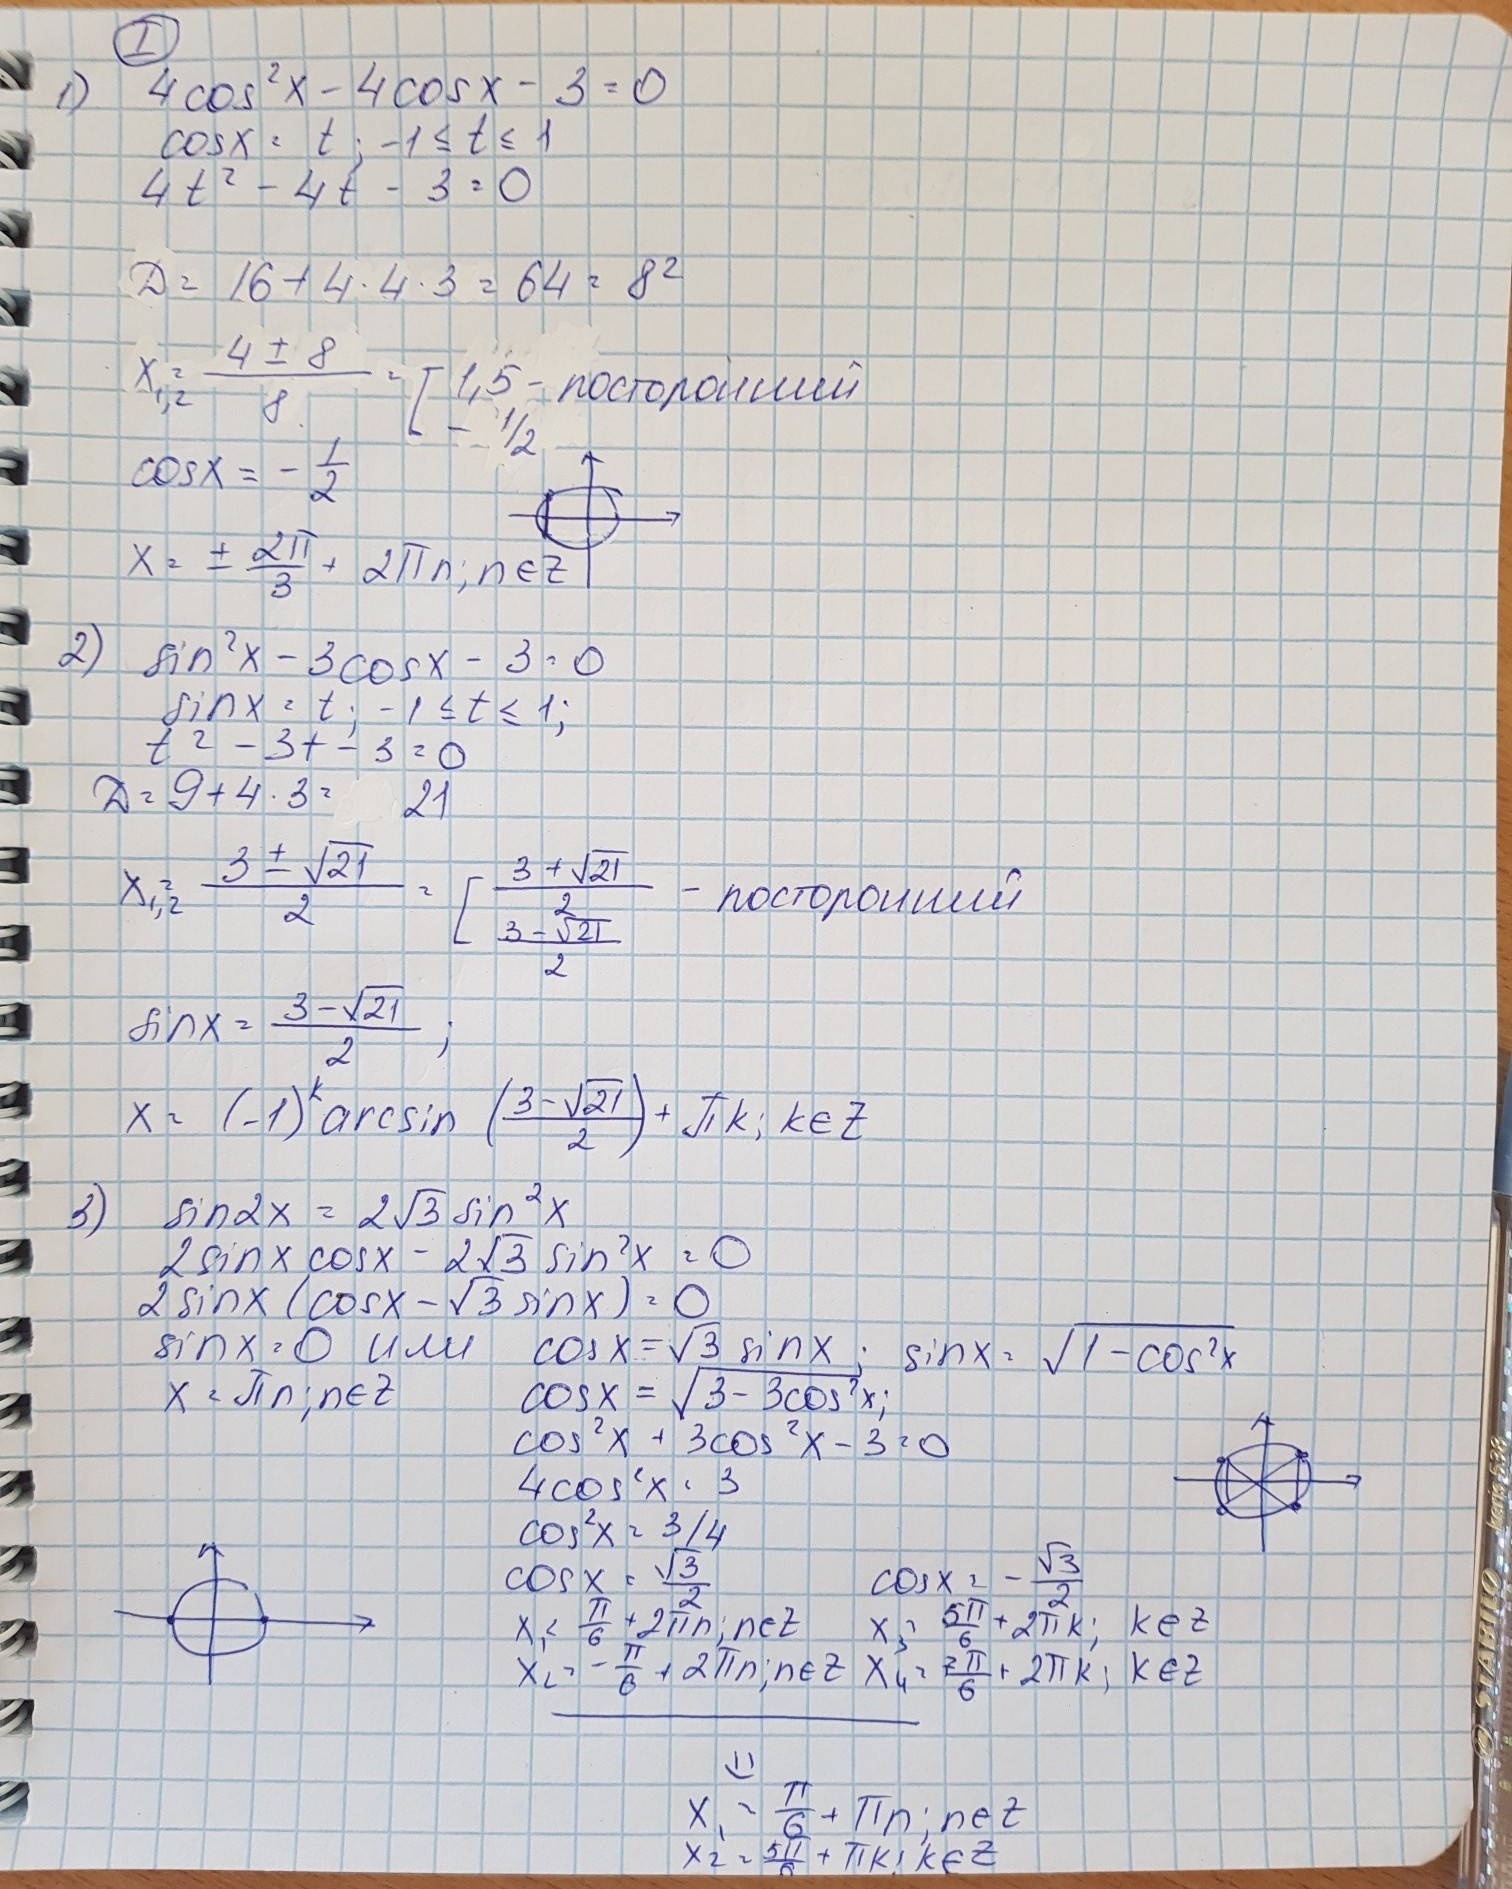 I
1) 4cos²x - 4cosx - 3 = 0
cosx = t; -1 ≤ t ≤ 1
4t² - 4t - 3 = 0
D = 16 + 4·4·3 = 64 = 8²
x₁,₂ = (4 ± 8)/8 = [ 1,5 - посторонний
- 1/2
cosx = - 1/2
x = ± 2π/3 + 2πn; n∈Z
2) sin²x - 3cosx - 3 = 0
sinx = t; -1 ≤ t ≤ 1;
t² - 3t - 3 = 0
D = 9 + 4·3 = 21
x₁,₂ = (3 ± √21)/2 = [ (3 + √21)/2 - посторонний
(3 - √21)/2
sinx = (3 - √21)/2 ;
x = (-1)ᵏ arcsin ((3 - √21)/2) + πk; k∈Z
3) sin2x = 2√3 sin²x
2sinx cosx - 2√3 sin²x = 0
2sinx (cosx - √3 sinx) = 0
sinx = 0 или cosx = √3 sinx; sinx = √(1 - cos²x)
x = πn; n∈Z cosx = √(3 - 3cos²x);
cos²x + 3cos²x - 3 = 0
4cos²x = 3
cos²x = 3/4
cosx = √3/2 cosx = - √3/2
x₁ = π/6 + 2πn; n∈Z x₃ = 5π/6 + 2πk; k∈Z
x₂ = - π/6 + 2πn; n∈Z x₄ = 7π/6 + 2πk; k∈Z
x₁ = π/6 + πn; n∈Z
x₂ = 5π/6 + πk; k∈Z
STABILO